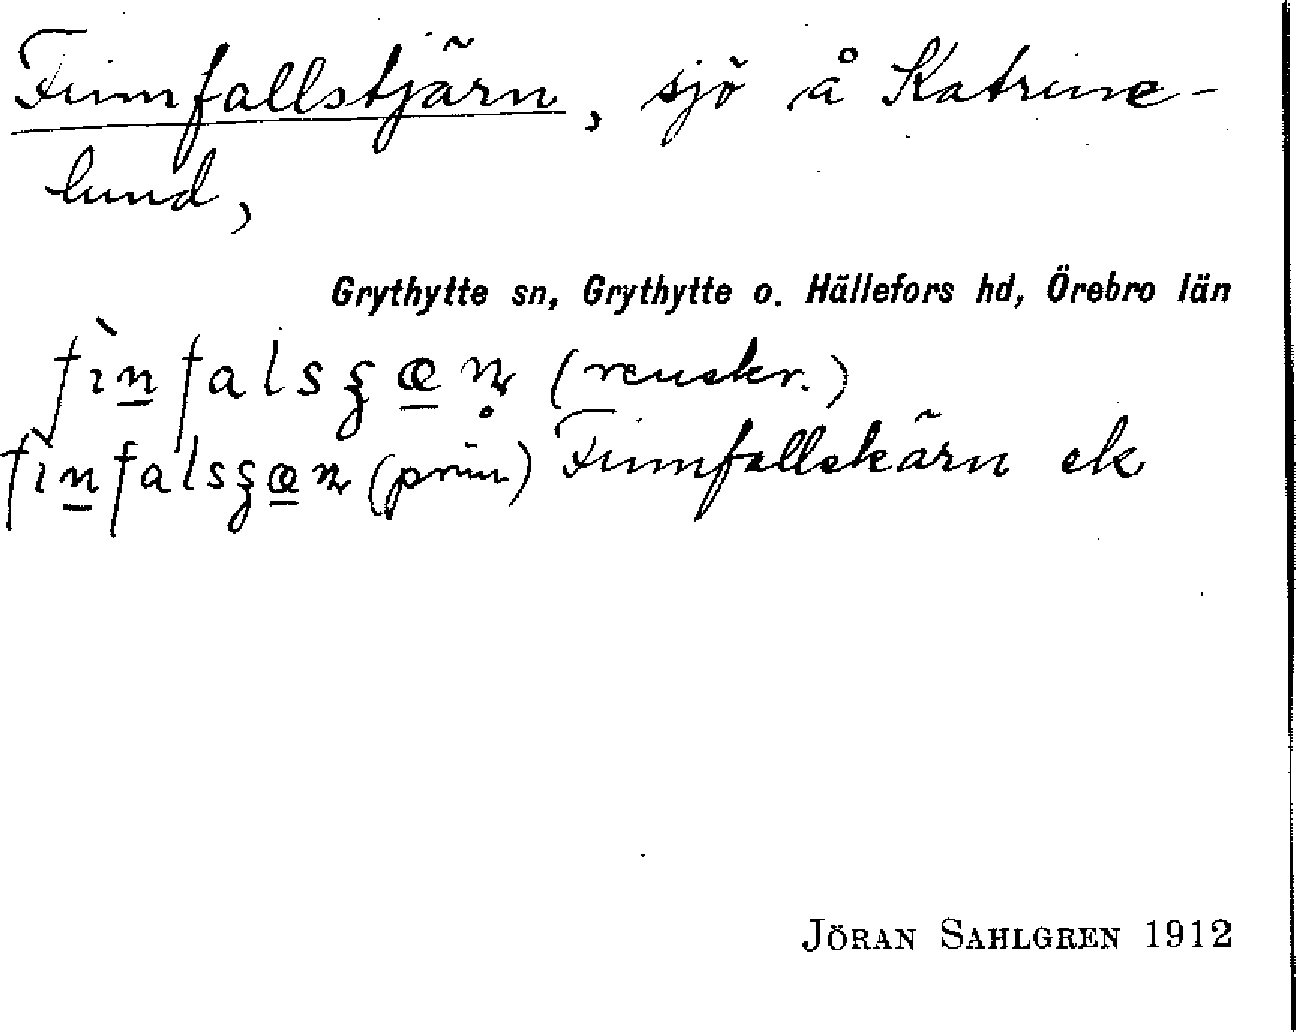 Finnfallstjärn, sjö å Katrine-
lund,
Grythytte sn, Grythytte o. Hällefors hd, Örebro län
fìn̲falsʂœ̲n̥ (renskr.)
fìn̲falsʂœ̲n (prim) Finnfallskärn ek
JÖRAN SAHLGREN 1912